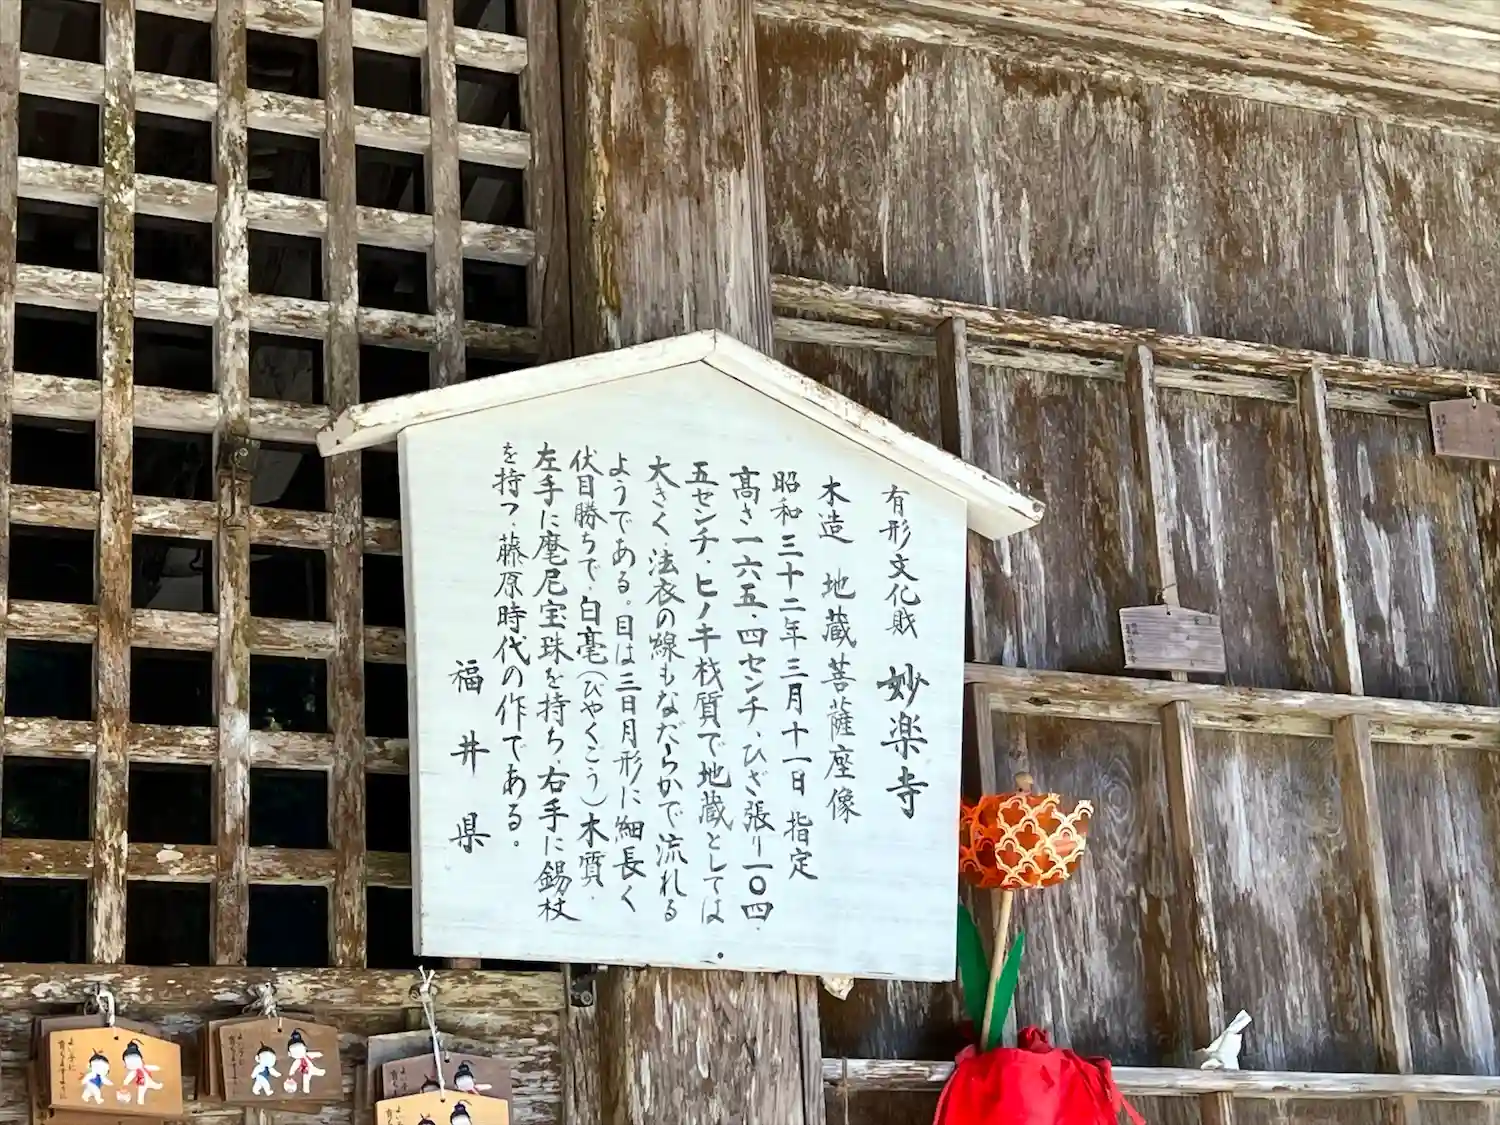 有形文化財 妙楽寺
木造 地蔵菩薩座像
昭和三十二年三月十一日 指定
高さ一六五、四センチ、ひざ張り一〇四、
五センチ、ヒノキ材質で地蔵としては
大きく法衣の線もなだらかで流れる
ようである。目は三日月形に細長く
伏目勝ちで、白毫(びやくごう)木質、
左手に麾尼宝珠を持ち、右手に錫杖
を持つ、藤原時代の作である。
福井県